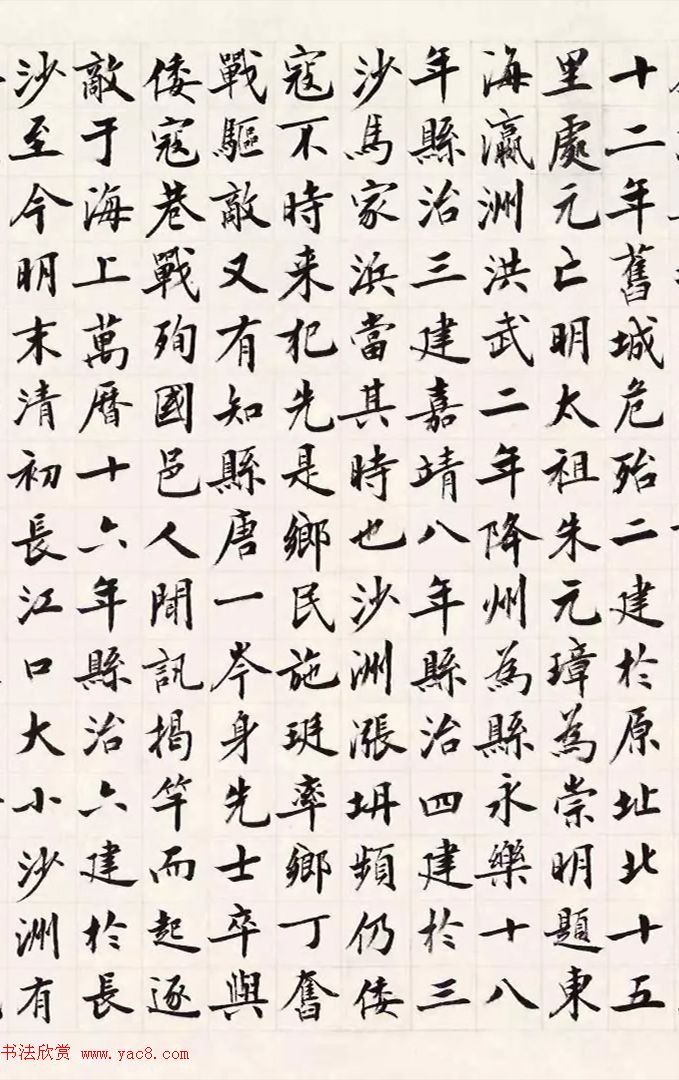 十二年舊城危殆二建於原址北十五
里處元亡明太祖朱元璋為崇明題東
海瀛洲洪武二年降州為縣永樂十八
年縣治三建嘉靖八年縣治四建於三
沙馬家浜當其時也沙洲漲坍頻仍倭
寇不時来犯先是鄉民施珽率鄉丁奮
戰驅敵又有知縣唐一岑身先士卒與
倭寇巷戰殉國邑人聞訊揭竿而起逐
敵于海上萬曆十六年縣治六建於長
沙至今明末清初長江口大小沙洲有
书法欣赏 www.yac8.com